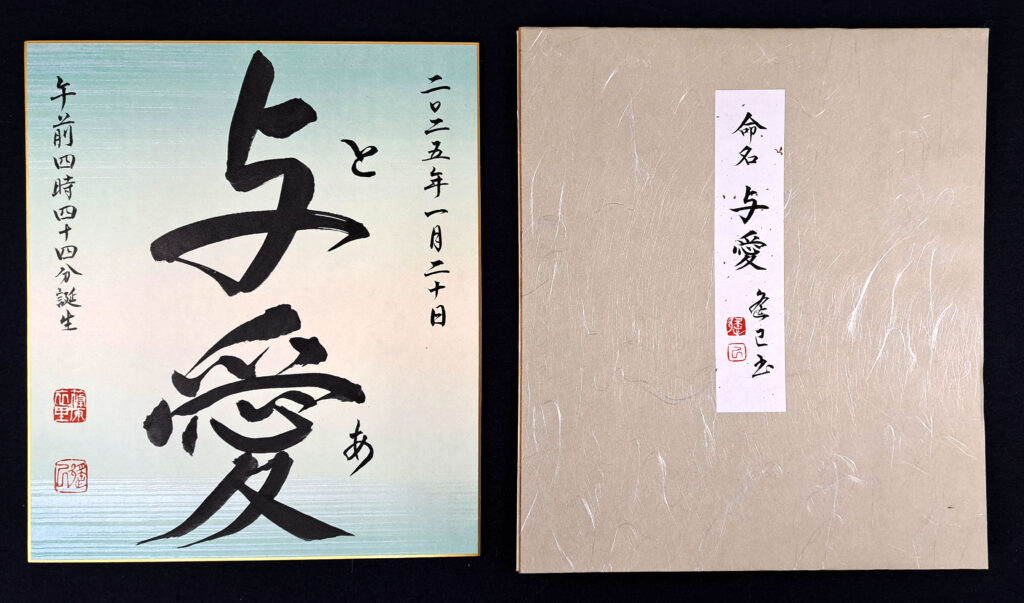 二〇二五年一月二十日
与愛
とあ
午前四時四十四分誕生
命名 与愛